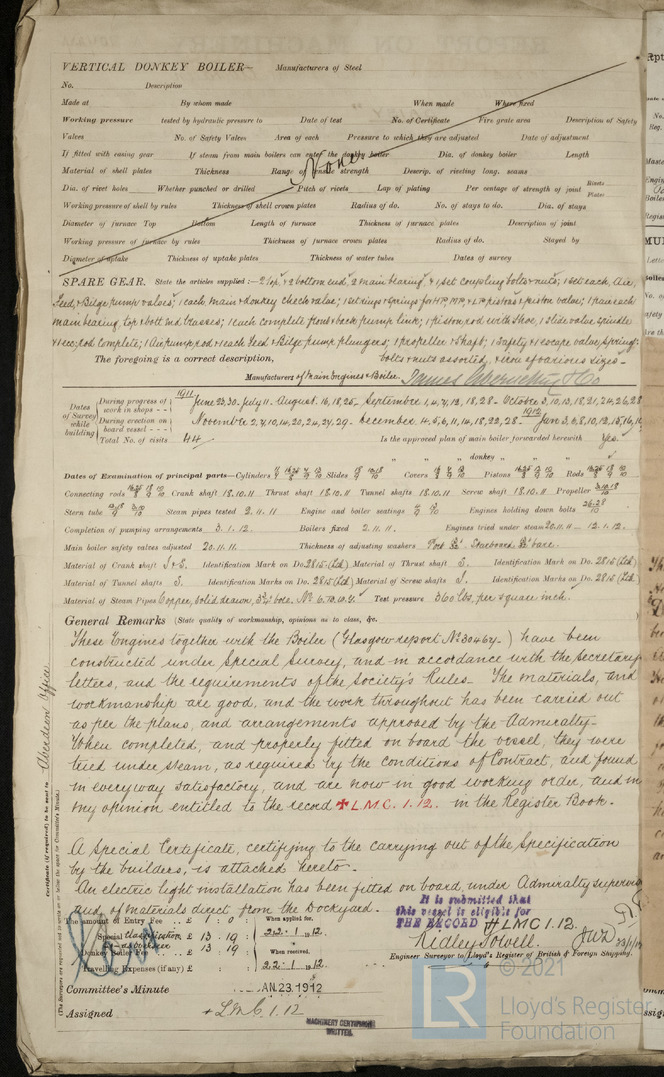 VERTICAL DONKEY BOILER— Manufacturers of Steel
No. Description
Made at By whom made When made Where fixed
Working pressure tested by hydraulic pressure to Date of test No. of Certificate Fire grate area Description of Safety
Valves No. of Safety Valves Area of each Pressure to which they are adjusted Date of adjustment
If fitted with easing gear If steam from main boilers can enter the donkey boiler Dia. of donkey boiler Length
None
Material of shell plates Thickness Range of tensile strength Descrip. of riveting long. seams
Dia. of rivet holes Whether punched or drilled Pitch of rivets Lap of plating Per centage of strength of joint Rivets Plates
Working pressure of shell by rules Thickness of shell crown plates Radius of do. No. of stays to do. Dia. of stays
Diameter of furnace Top Bottom Length of furnace Thickness of furnace plates Description of joint
Working pressure of furnace by rules Thickness of furnace crown plates Radius of do. Stayed by
Diameter of uptake Thickness of uptake plates Thickness of water tubes Dates of survey
SPARE GEAR. State the articles supplied:— 2 top, & 2 bottom end, 2 main bearing, & 1 set coupling bolts & nuts; 1 set each, Air,
Feed, & Bilge pump valves; 1 each, main & donkey check valve; 1 set rings & springs for HP, MP, & LP pistons & piston valve; 1 pair each
main bearing, top & bott end brasses; 1 each complete front & back pump link; 1 piston rod with shoe, 1 slide valve spindle
& ecc. rod complete; 1 Air pump rod & each Feed & Bilge pump plungers; 1 propeller & shaft; 1 safety & escape valve spring;
The foregoing is a correct description, bolts & nuts assorted, & iron of various sizes—
Manufacturer of Main Engines & Boiler.
Dates of Survey while building
1911
During progress of work in shops - - June 23, 30. July 11. August. 16, 18, 25. September 1, 4, 7, 12, 18, 28. October 3, 10, 13, 18, 21, 24, 26, 28
During erection on board vessel - - - November 2, 7, 10, 14, 20, 24, 27, 29. December. 4, 5, 6, 11, 14, 18, 22, 28. 1912 Jan 3, 6, 8, 10, 12, 15, 16,
Total No. of visits 44 Is the approved plan of main boiler forwarded herewith Yes.
" " " donkey " "
Dates of Examination of principal parts—Cylinders Slides Covers Pistons Rods
Connecting rods Crank shaft 18.10.11 Thrust shaft 18.10.11 Tunnel shafts 18.10.11 Screw shaft 18.10.11 Propeller
Stern tube Steam pipes tested 2.11.11 Engine and boiler seatings Engines holding down bolts
Completion of pumping arrangements 3.1.12. Boilers fixed 2.11.11. Engines tried under steam 20.11.11 — 12.1.12.
Main boiler safety valves adjusted 20.11.11. Thickness of adjusting washers
Material of Crank shaft Identification Mark on Do. 2815 Material of Thrust shaft S. Identification Mark on Do. 2815
Material of Tunnel shafts S. Identification Marks on Do. 2815 Material of Screw shafts S. Identification Marks on Do. 2815
Material of Steam Pipes Copper, solid drawn, Test pressure 360 lbs. per square inch.
General Remarks (State quality of workmanship, opinions as to class, &c.
These Engines together with the Boiler (Glasgow report No 30464—) have been
constructed under Special Survey, and in accordance with the Secretary's
letters, and the requirements of the Society's Rules— The materials, and
workmanship are good, and the work throughout has been carried out
as per the plans, and arrangements approved by the Admiralty—
When completed, and properly fitted on board the vessel, they were
tried under steam, as required by the conditions of Contract, and found
in every way satisfactory, and are now in good working order, and in
my opinion entitled to the record ✠ L.M.C. 1.12. in the Register Book.
A Special Certificate, certifying to the carrying out of the Specification
by the builders, is attached hereto.
An electric light installation has been fitted on board, under Admiralty
and of materials direct from the Dockyard.
It is submitted that
this vessel is eligible for
THE RECORD ✠ LMC 1.12.
The amount of Entry Fee .. £ 1 : 0 : When applied for,
Special £ 13 : 19 : 22.1.1912.
Donkey Boiler £ 13 19 When received,
Travelling Expenses (if any) £ : : 22.1.1912.
Engineer Surveyor to Lloyd's Register of British & Foreign Shipping.
Committee's Minute JAN. 23. 1912
Assigned + LMC 1.12
MACHINERY CERTIFICATE
WRITTEN.
Certificate (if required) to be sent to Aberdeen Office
(The Surveyors are requested not to write on or below the space for Committee's Minute.)
© 2021
LR
Lloyd's Register
Foundation